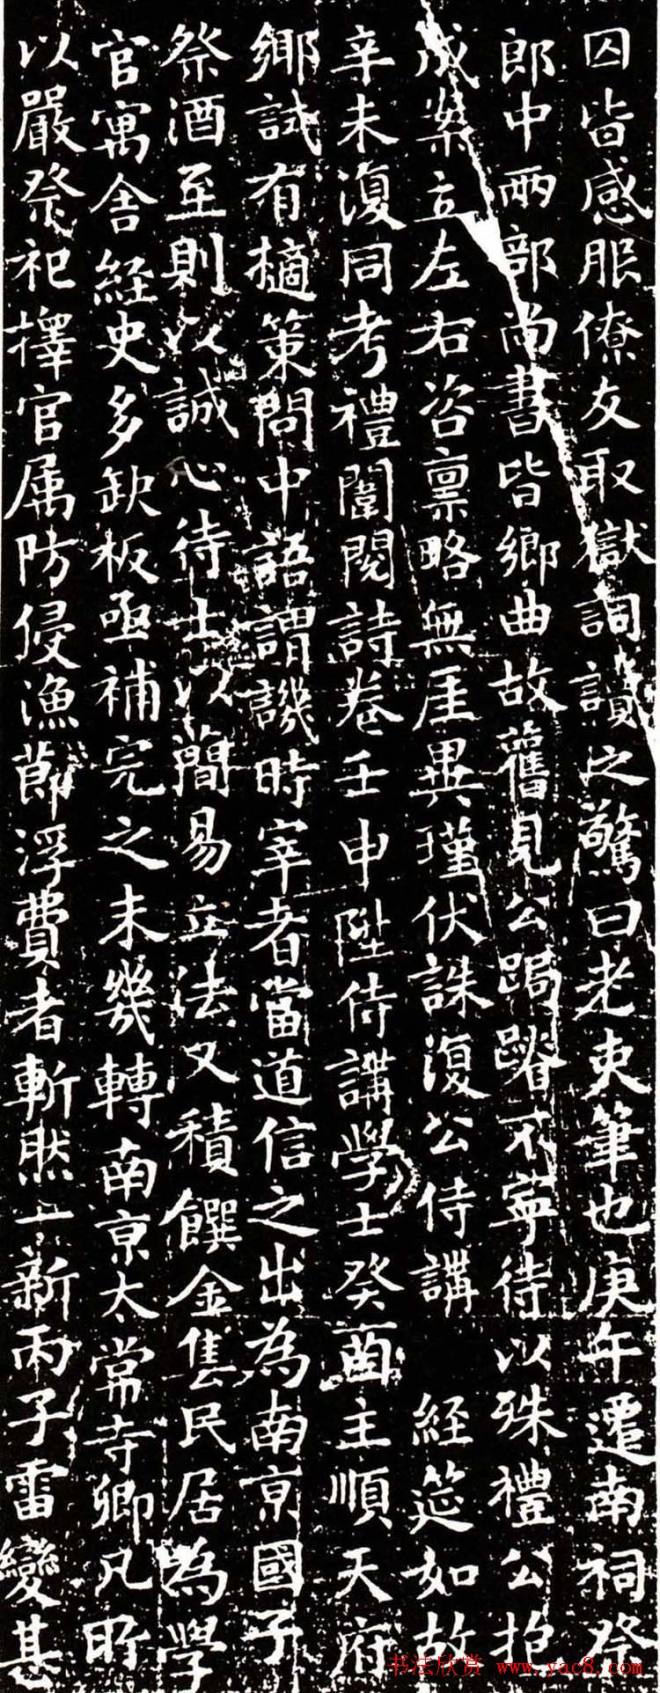 囚皆感服僚友取獄詞讀之驚曰老吏筆也庚午遷南祠祭
郎中兩部尚書皆鄉曲故舊見公跼蹐不寧待以殊禮公抱
成案立左右咨禀略無厓異瑾伏誅復公侍講 經筵如故
辛未復同考禮闈閱詩卷壬申陞侍講學士癸酉主順天府
鄉試有擿策問中語謂譏時宰者當道信之出為南京國子
祭酒至則以誠心待士以簡易立法又積饌金售民居為學
官寓舍經史多缺板亟補完之未幾轉南京太常寺卿凡所
以嚴祭祀擇官属防侵漁節浮費者斬然一新丙子雷變其
书法欣赏 www.yac8.com